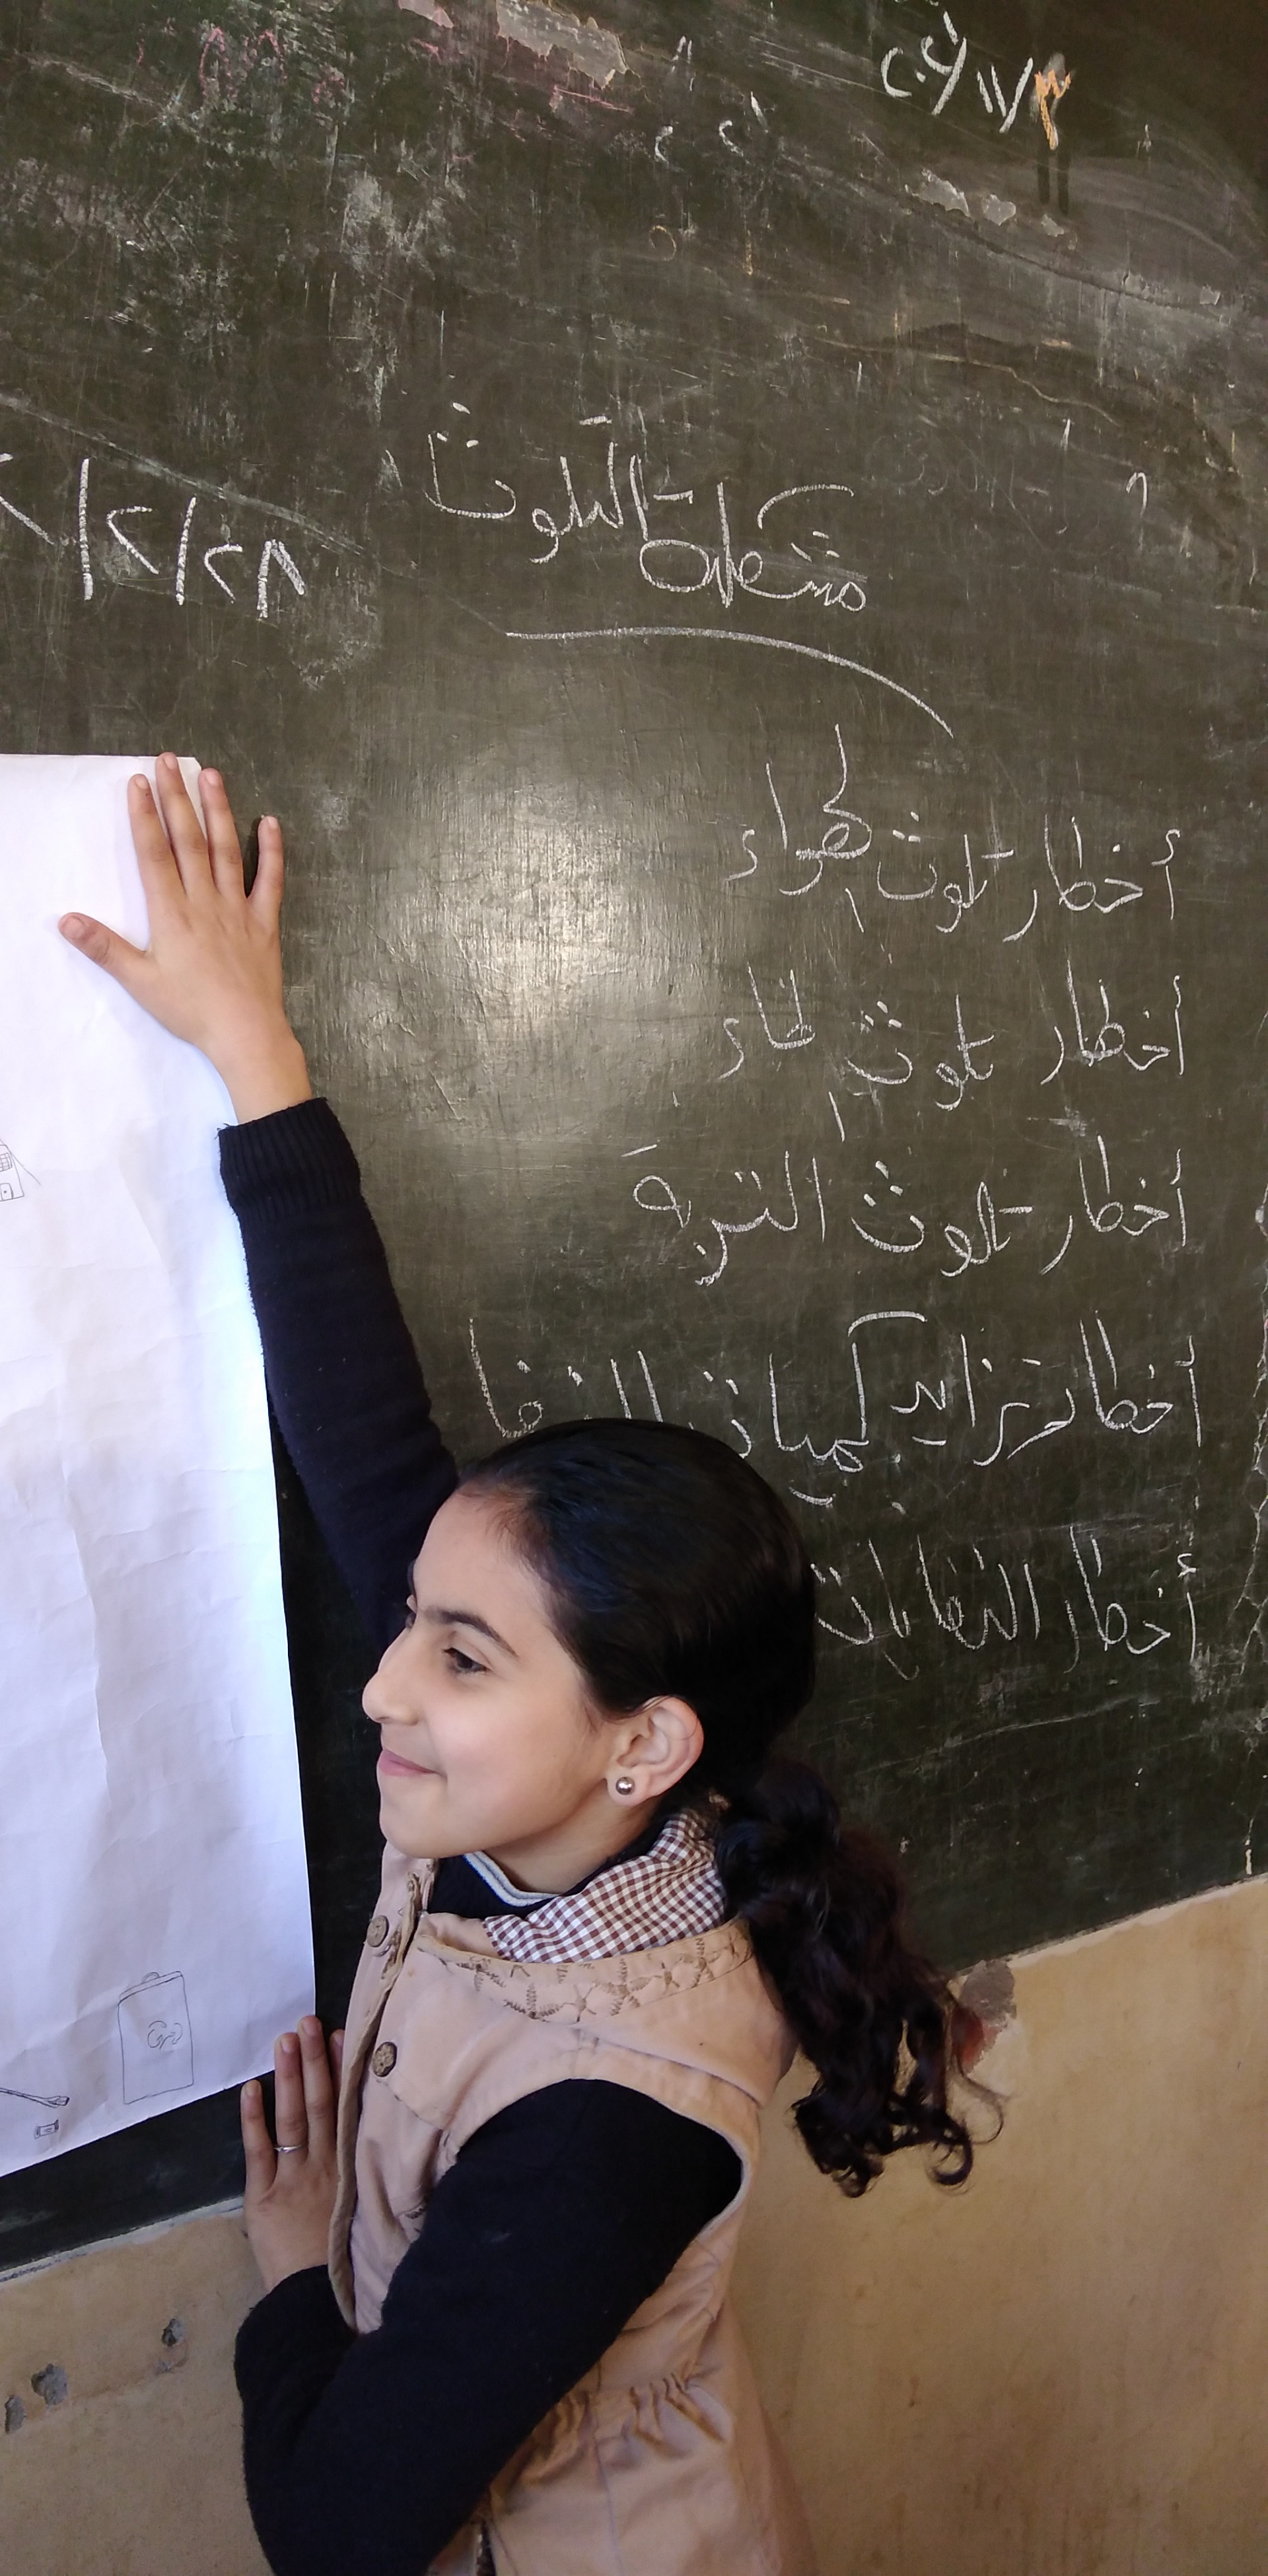 مشكلة التلوث
٢٨/٢/
أخطار تلوث الهواء
أخطار تلوث الماء
أخطار تلوث التربة
أخطار تزايد كميات النفا
أخطار النفايات